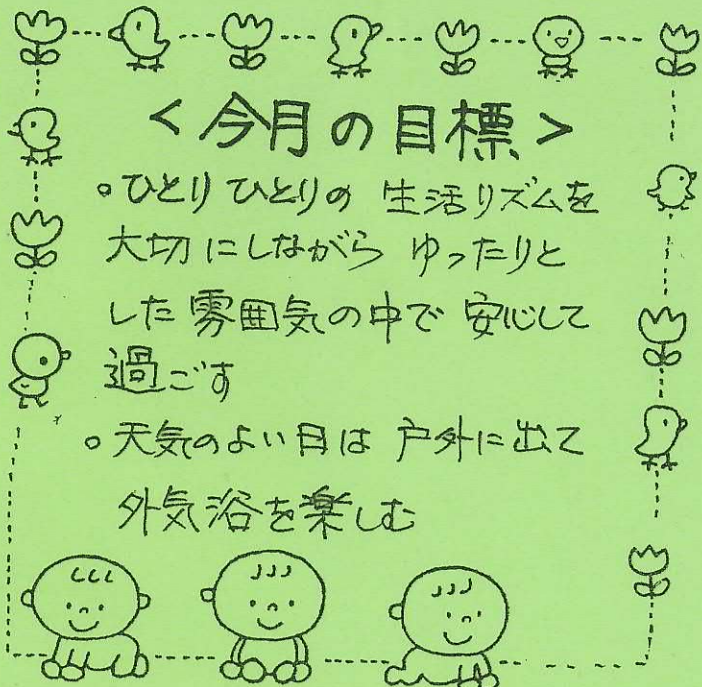 <今月の目標>
。ひとりひとりの 生活リズムを
大切にしながら ゆったりと
した 雰囲気の中で 安心して
過ごす
。天気のよい日は 戸外に出て
外気浴を楽しむ